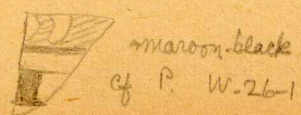 maroon-black
cf P. W-26-1